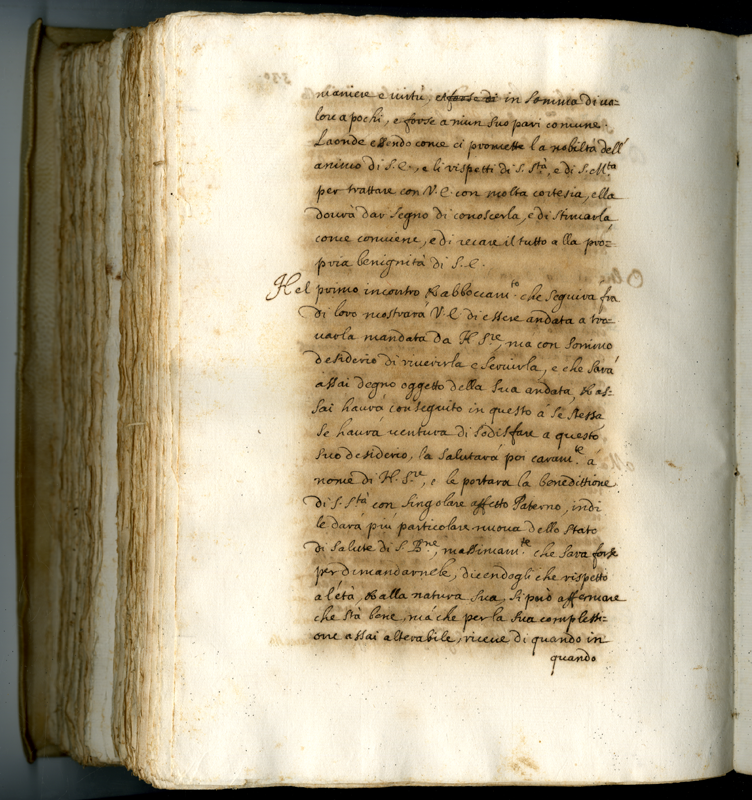 maniere e virtù, et forse di in somma di ua=
lore a pochi, e forse a niun suo pari comune.
Laonde essendo come ci promette la nobiltà dell'
animo di S. E., e li rispetti di S. Stà, e di S. Mtà
per trattare con V. E. con molta cortesia, ella
dourà dar segno di conoscerla, e di stimarla
come conuiene, e di recare il tutto alla pro=
pria benignità di S. E.
Nel primo incontro, & abboccamto che seguirà fra
di loro mostrarà V. E. di essere andata a tro=
uarla mandata da N. Sre, ma con sommo
desiderio di riuerirla e seruirla, e che sarà
assai degno oggetto della sua andata, & as=
sai haurà conseguito in questo à se stessa
se haurà uentura di sodisfare a questo
suo desiderio, la salutarà poi caramte à
nome di N. Sre, e le portarà la benedittione
di S. Stà con singolare affetto Paterno, indi
le darà più particolare nuoua dello stato
di salute di S. Bne, massimamte che sarà forse
per dimandarnele, dicendogli che rispetto
a l'età, & alla natura sua, si può affermare
che stà bene, mà che per la sua complessi=
one assai alterabile, riceue di quando in
quando